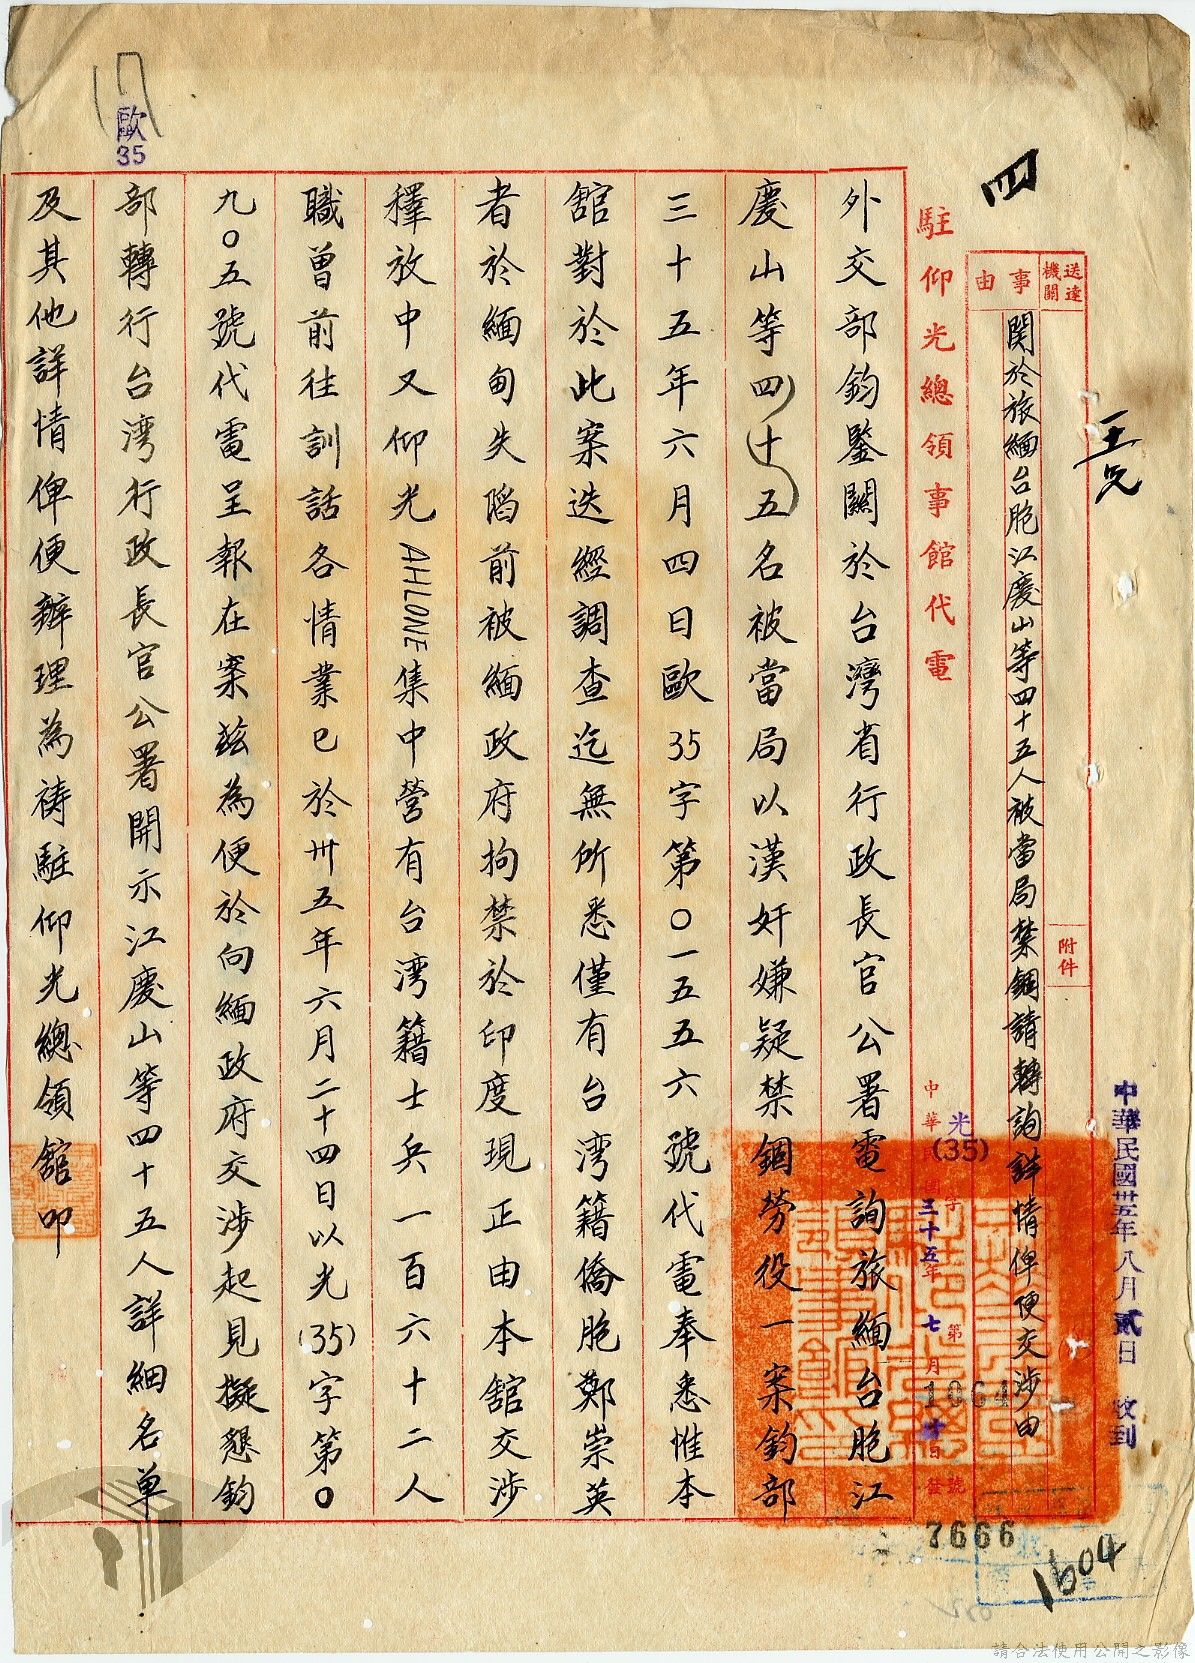 四
王元
中華民國卅五年八月貳日 收到
送達機關
附件
事由
關於旅緬台胞江慶山等四十五人被當局禁錮請轉詢詳情俾便交涉由
駐仰光總領事館代電
光(35)字第1064號
三十五年七月廿日發
7666
1604
外交部鈞鑒關於台灣省行政長官公署電詢旅緬台胞江
慶山等四十五名被當局以漢奸嫌疑禁錮勞役一案鈞部
三十五年六月四日歐35字第〇一五五六號代電奉悉惟本
館對於此案迭經調查迄無所悉僅有台灣籍僑胞鄭崇英
者於緬甸失陷前被緬政府拘禁於印度現正由本館交涉
釋放中又仰光AHLONE集中營有台灣籍士兵一百六十二人
職曾前往訓話各情業已於卅五年六月二十四日以光(35)字第〇
九〇五號代電呈報在案茲為便於向緬政府交涉起見擬懇鈞
部轉行台灣行政長官公署開示江慶山等四十五人詳細名單
及其他詳情俾便辦理為禱駐仰光總領館叩
歐
35
請合法使用公開之影像